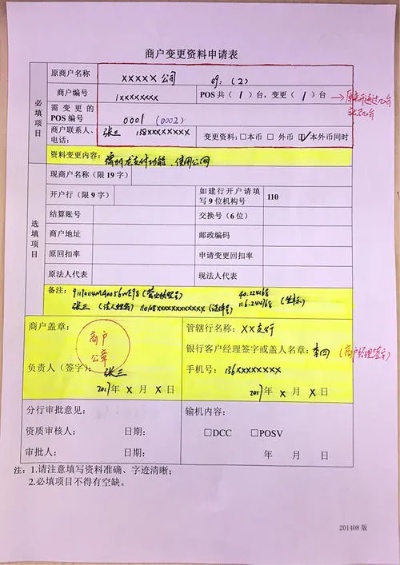 商户变更资料申请表
必填项目
原商户名称 XXXXX 公司 or (2)
商户编号 1xxxxxxxx POS共(1)台，变更(1)台
需变更的POS编号 0001 (0002)
商户联系人、电话： 张三 138xxxxxxxx 变更资料：□本币 □外币 ☑本外币同时
资料变更内容：
选填项目
现商户名称（限19字）
开户行（限9字） 如建行开户请填写9位机构号 110
结算账号 交换号（6位）
商户地址 邮政编码
原回扣率 申请变更回扣率
原法人代表 现法人代表
备注： (营业执照号)
张三 (法人姓名) (坐标)
商户盖章： 管辖行名称： XX支行
商户公章
银行客户经理签字或盖人名章： 李四 (客户经理签字)
负责人（签字）： 张三 手机号： 136xxxxxxxx
2017年 X 月 X 日 2017年 X 月 X 日
分行审批意见： 输机内容：
资质审核人： 日期： □DCC □POSV
审批人： 日期： 年 月 日
注：1.请注意填写资料准确、字迹清晰；
2.必填项目不得有空缺。
201408 版